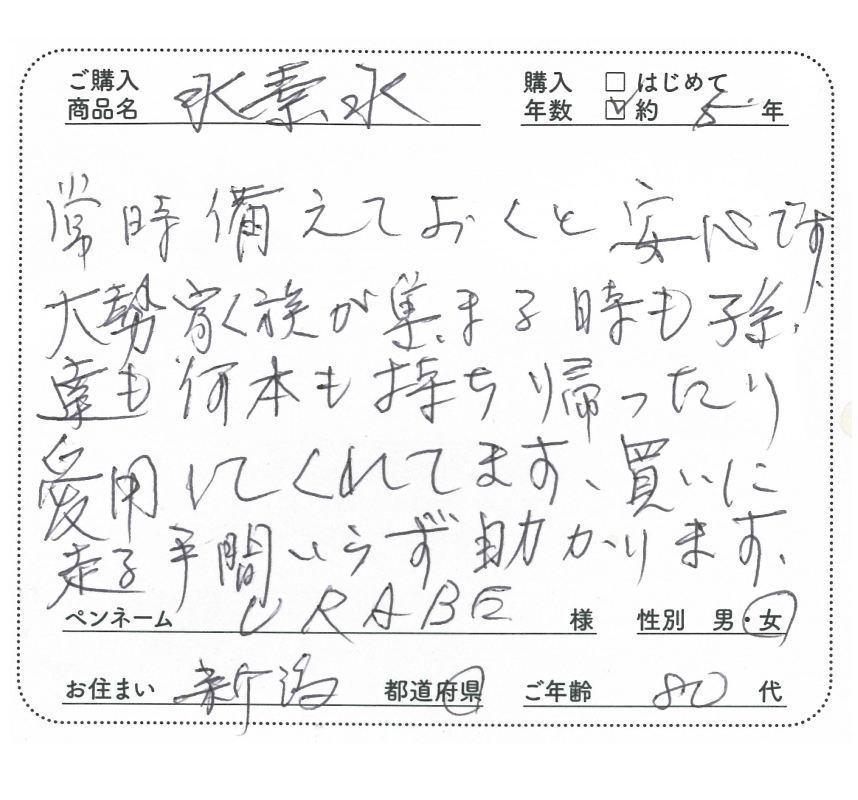 ご購入 商品名 水素水 購入年数 □はじめて ☑約 5 年
常時備えておくと安心です、
大勢家族が集まる時も孫
達も何本も持ち帰ったり
愛用してくれてます、買いに
走る手間いらず助かります、
ペンネーム URABE 様 性別 男・女
お住まい 新潟 都道府県 ご年齢 80 代